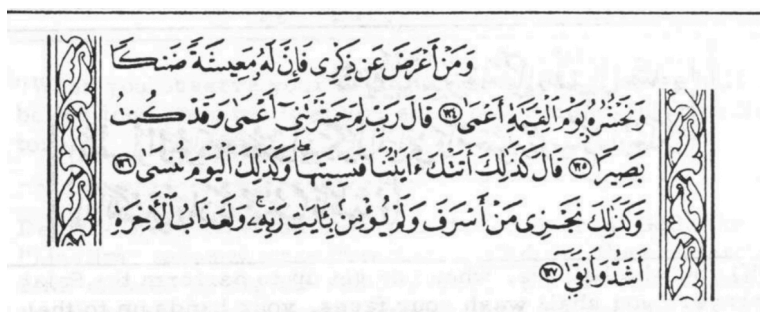 وَمَنْ أَعْرَضَ عَن ذِكْرِى فَإِنَّ لَهُۥ مَعِيشَةً ضَنكًا
وَنَحْشُرُهُۥ يَوْمَ ٱلْقِيَٰمَةِ أَعْمَىٰ ١٢٤ قَالَ رَبِّ لِمَ حَشَرْتَنِىٓ أَعْمَىٰ وَقَدْ كُنتُ
بَصِيرًا ١٢٥ قَالَ كَذَٰلِكَ أَتَتْكَ ءَايَٰتُنَا فَنَسِيتَهَا ۖ وَكَذَٰلِكَ ٱلْيَوْمَ تُنسَىٰ ١٢٦
وَكَذَٰلِكَ نَجْزِى مَنْ أَسْرَفَ وَلَمْ يُؤْمِنۢ بِـَٔايَٰتِ رَبِّهِۦ ۚ وَلَعَذَابُ ٱلْءَاخِرَةِ
أَشَدُّ وَأَبْقَىٰٓ ١٢٧